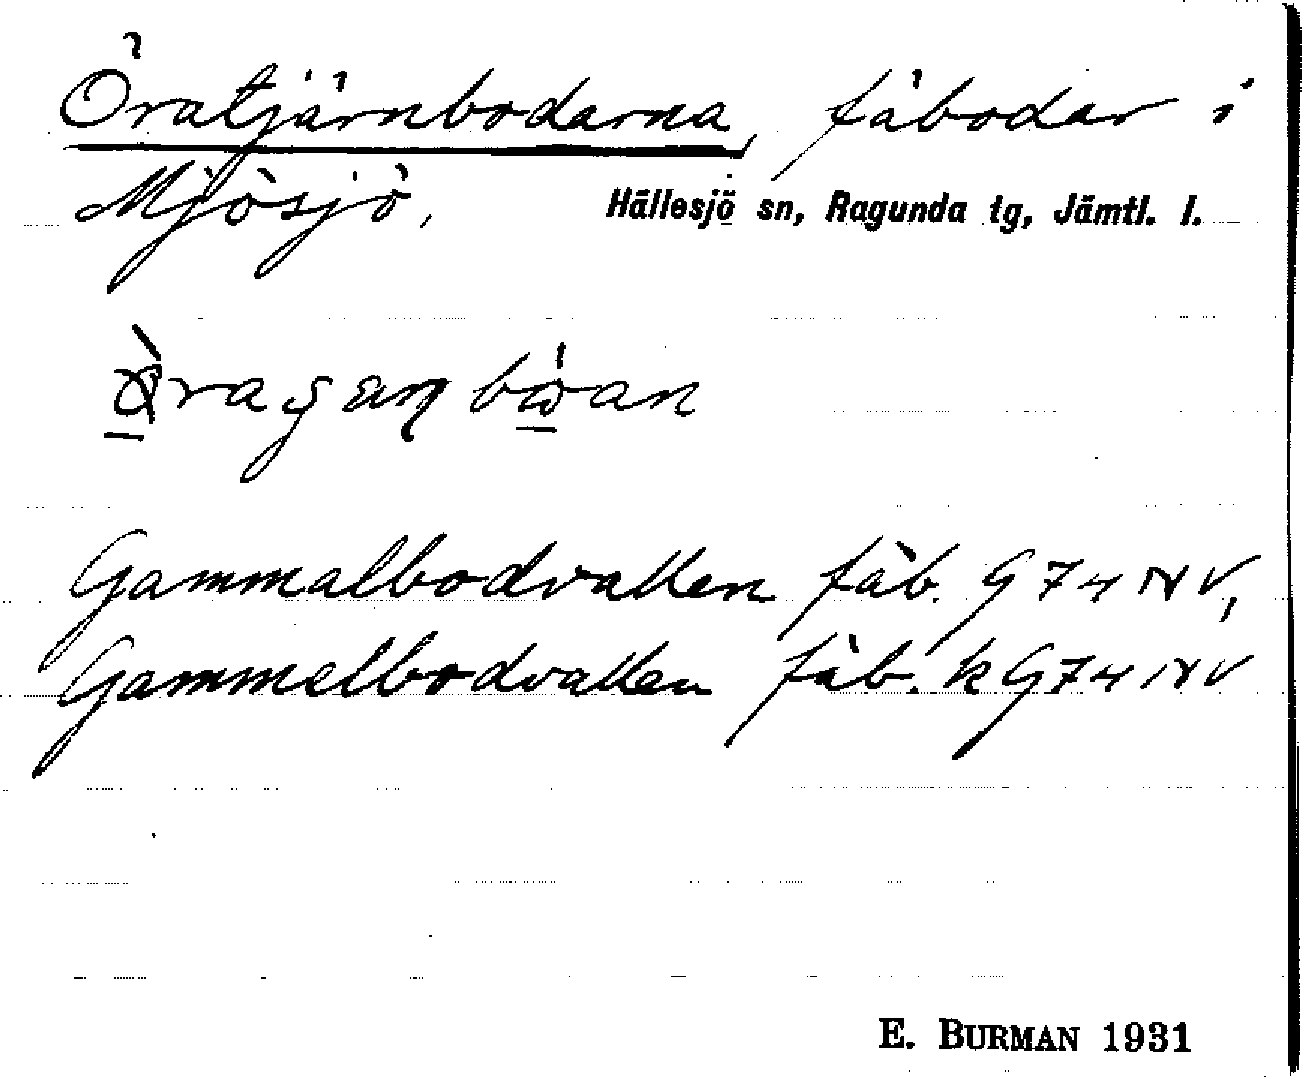 Öratjärnbodarna, fäbodar i
Mjösjö, Hällesjö sn, Ragunda tg, Jämtl. l.
Gammalbodvallen fäb. G 74 NV,
Gammelbodvallen fäb. k G 74 NV
E. BURMAN 1931